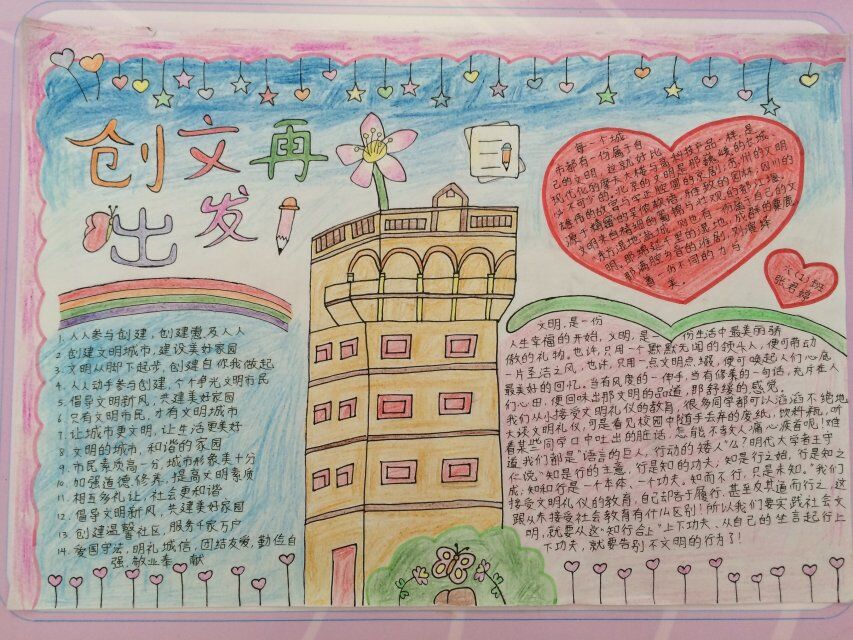 创文再
出发
每一个城
市都有一份属于自
己的文明,这就好比
现代化的摩天大楼与高科技产品一样,是
必不可少的,北京的文明是那巍峨的长城
雄伟的故宫与字正腔圆的京剧;苏州的文明
源于精雕的亭台歌榭,雅致的园林;四川的
文明来自精细的蜀锦与壮观的都江堰。
我们湿地盐城,则也有一份属于自己的文
明,那绵延千里的湿地,成群的麋鹿
那满腔乡音的淮剧,则演绎
着一份不同的文与
来。
六(1)班
张君婷
1. 人人参与创建,创建惠及人人
2 创建文明城市,建设美好家园
3. 文明从脚下起步,创建自你我做起
4. 人人动手参与创建,个个争光文明市民
5. 倡导文明新风,共建美好家园
6. 只有文明市民,才有文明城市
7. 让城市更文明,让生活更美好
8 文明的城市,和谐的家园
9. 市民素质高一分,城市形象美十分
10. 加强道德修养,提高文明素质
11. 相互多礼让,社会更和谐
12. 倡导文明新风,共建美好家园
13. 创建温馨社区,服务千家万户
14. 爱国守法,明礼诚信,团结友爱,勤俭自
强,敬业奉献
文明,是一份
人生幸福的开始,文明,是一份生活中最美的骄
傲的礼物。也许,只用一个默默无闻的铁斗人,便可带动
一片圣洁之风,也许,只用一点文明点缀,便可唤起人们心底
最美好的回忆。当有风度的一伸手,当有修美的一句话,充斥在人
们心田,便回味出那文明的品道,那舒缓的感觉。
我们从小接受文明礼仪的教育,很多同学都可以滔滔不绝地
大谈文明礼仪,可是看见校园中随手丢弃的废纸,饮料瓶,听
着某些同学口中吐出的脏话,怎能不教人痛心疾首呢!难
道我们都是"语言的巨人,行动的矮人"么?明代大学者王守
仁说:"知是行的主意,行是知的功夫,知是行之始,行是知之
成;知和行是一个本体、一个功夫。知而不行,只是未知。"我们
接受文明礼仪的教育,自己却吝于履行,甚至反其道而行之,这
跟从未接受社会教育有什么区别!所以我们要实践社会文
明,就要从这"知行合一"上下功夫,从自己的坐言起行上
下功夫,就要告别不文明的行为了!